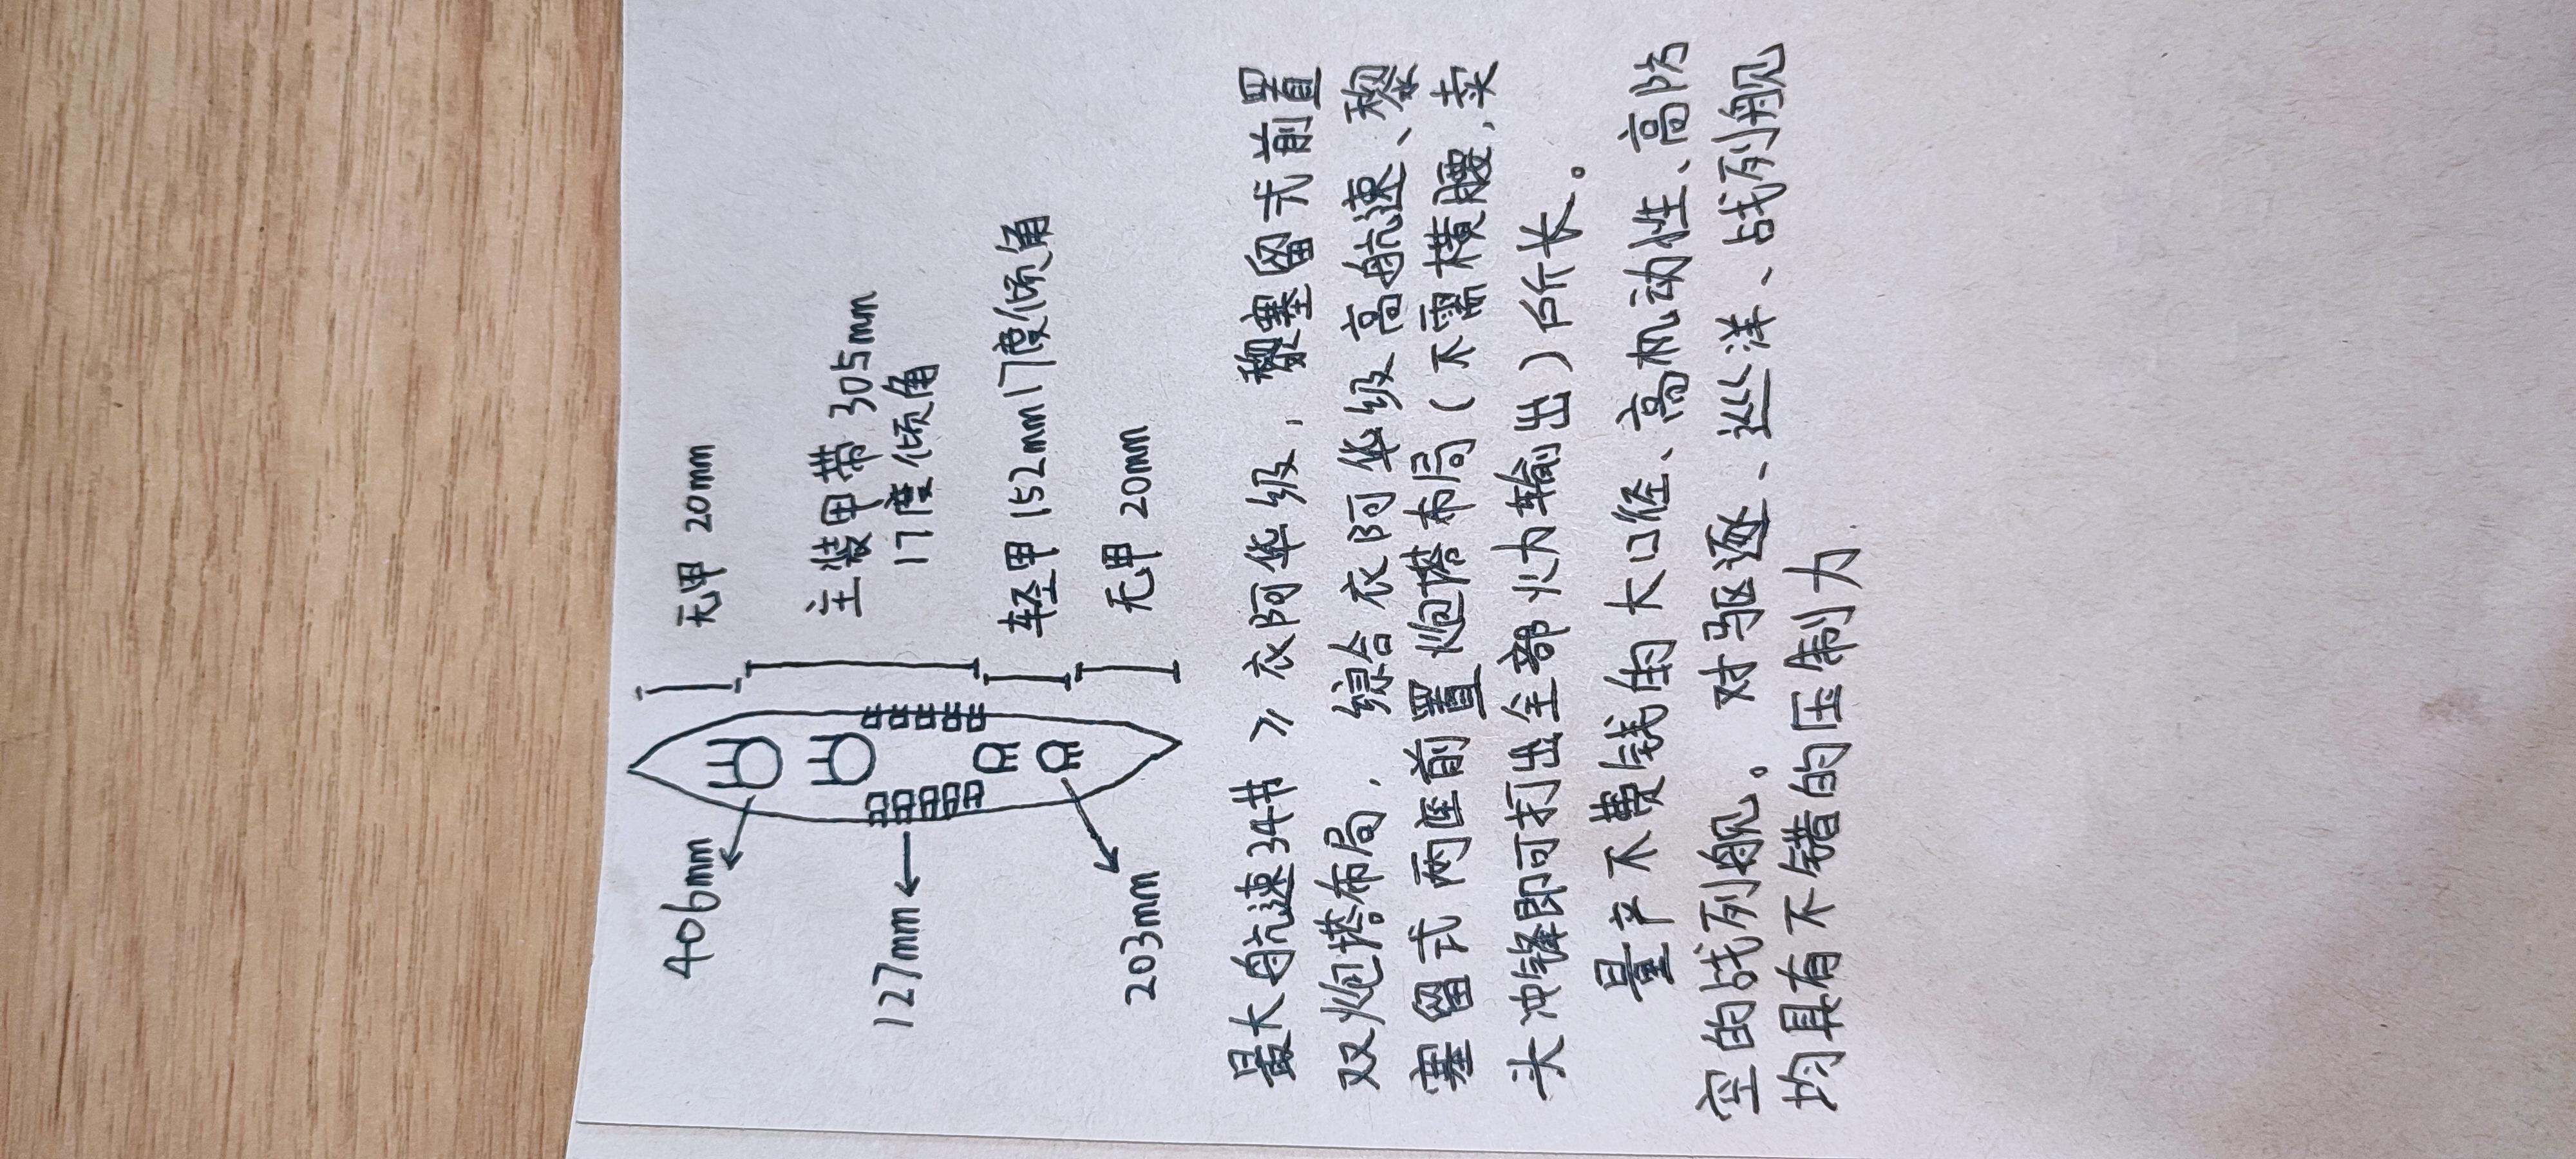 406mm
无甲 20mm
主装甲带 305mm
17度倾角
127mm
轻甲 152mm 17度倾角
无甲 20mm
203mm
最大航速34节 ≥ 衣阿华级，黎塞留式前置
双炮塔布局，综合衣阿华级高航速、黎
塞留式两座前置炮塔布局（不需横腰，卖
头冲锋即可打出全部火力输出）所长。
量产不费钱的大口径、高机动性、高防
空的战列舰。对驱逐、巡洋、战列舰
均具有不错的压制力